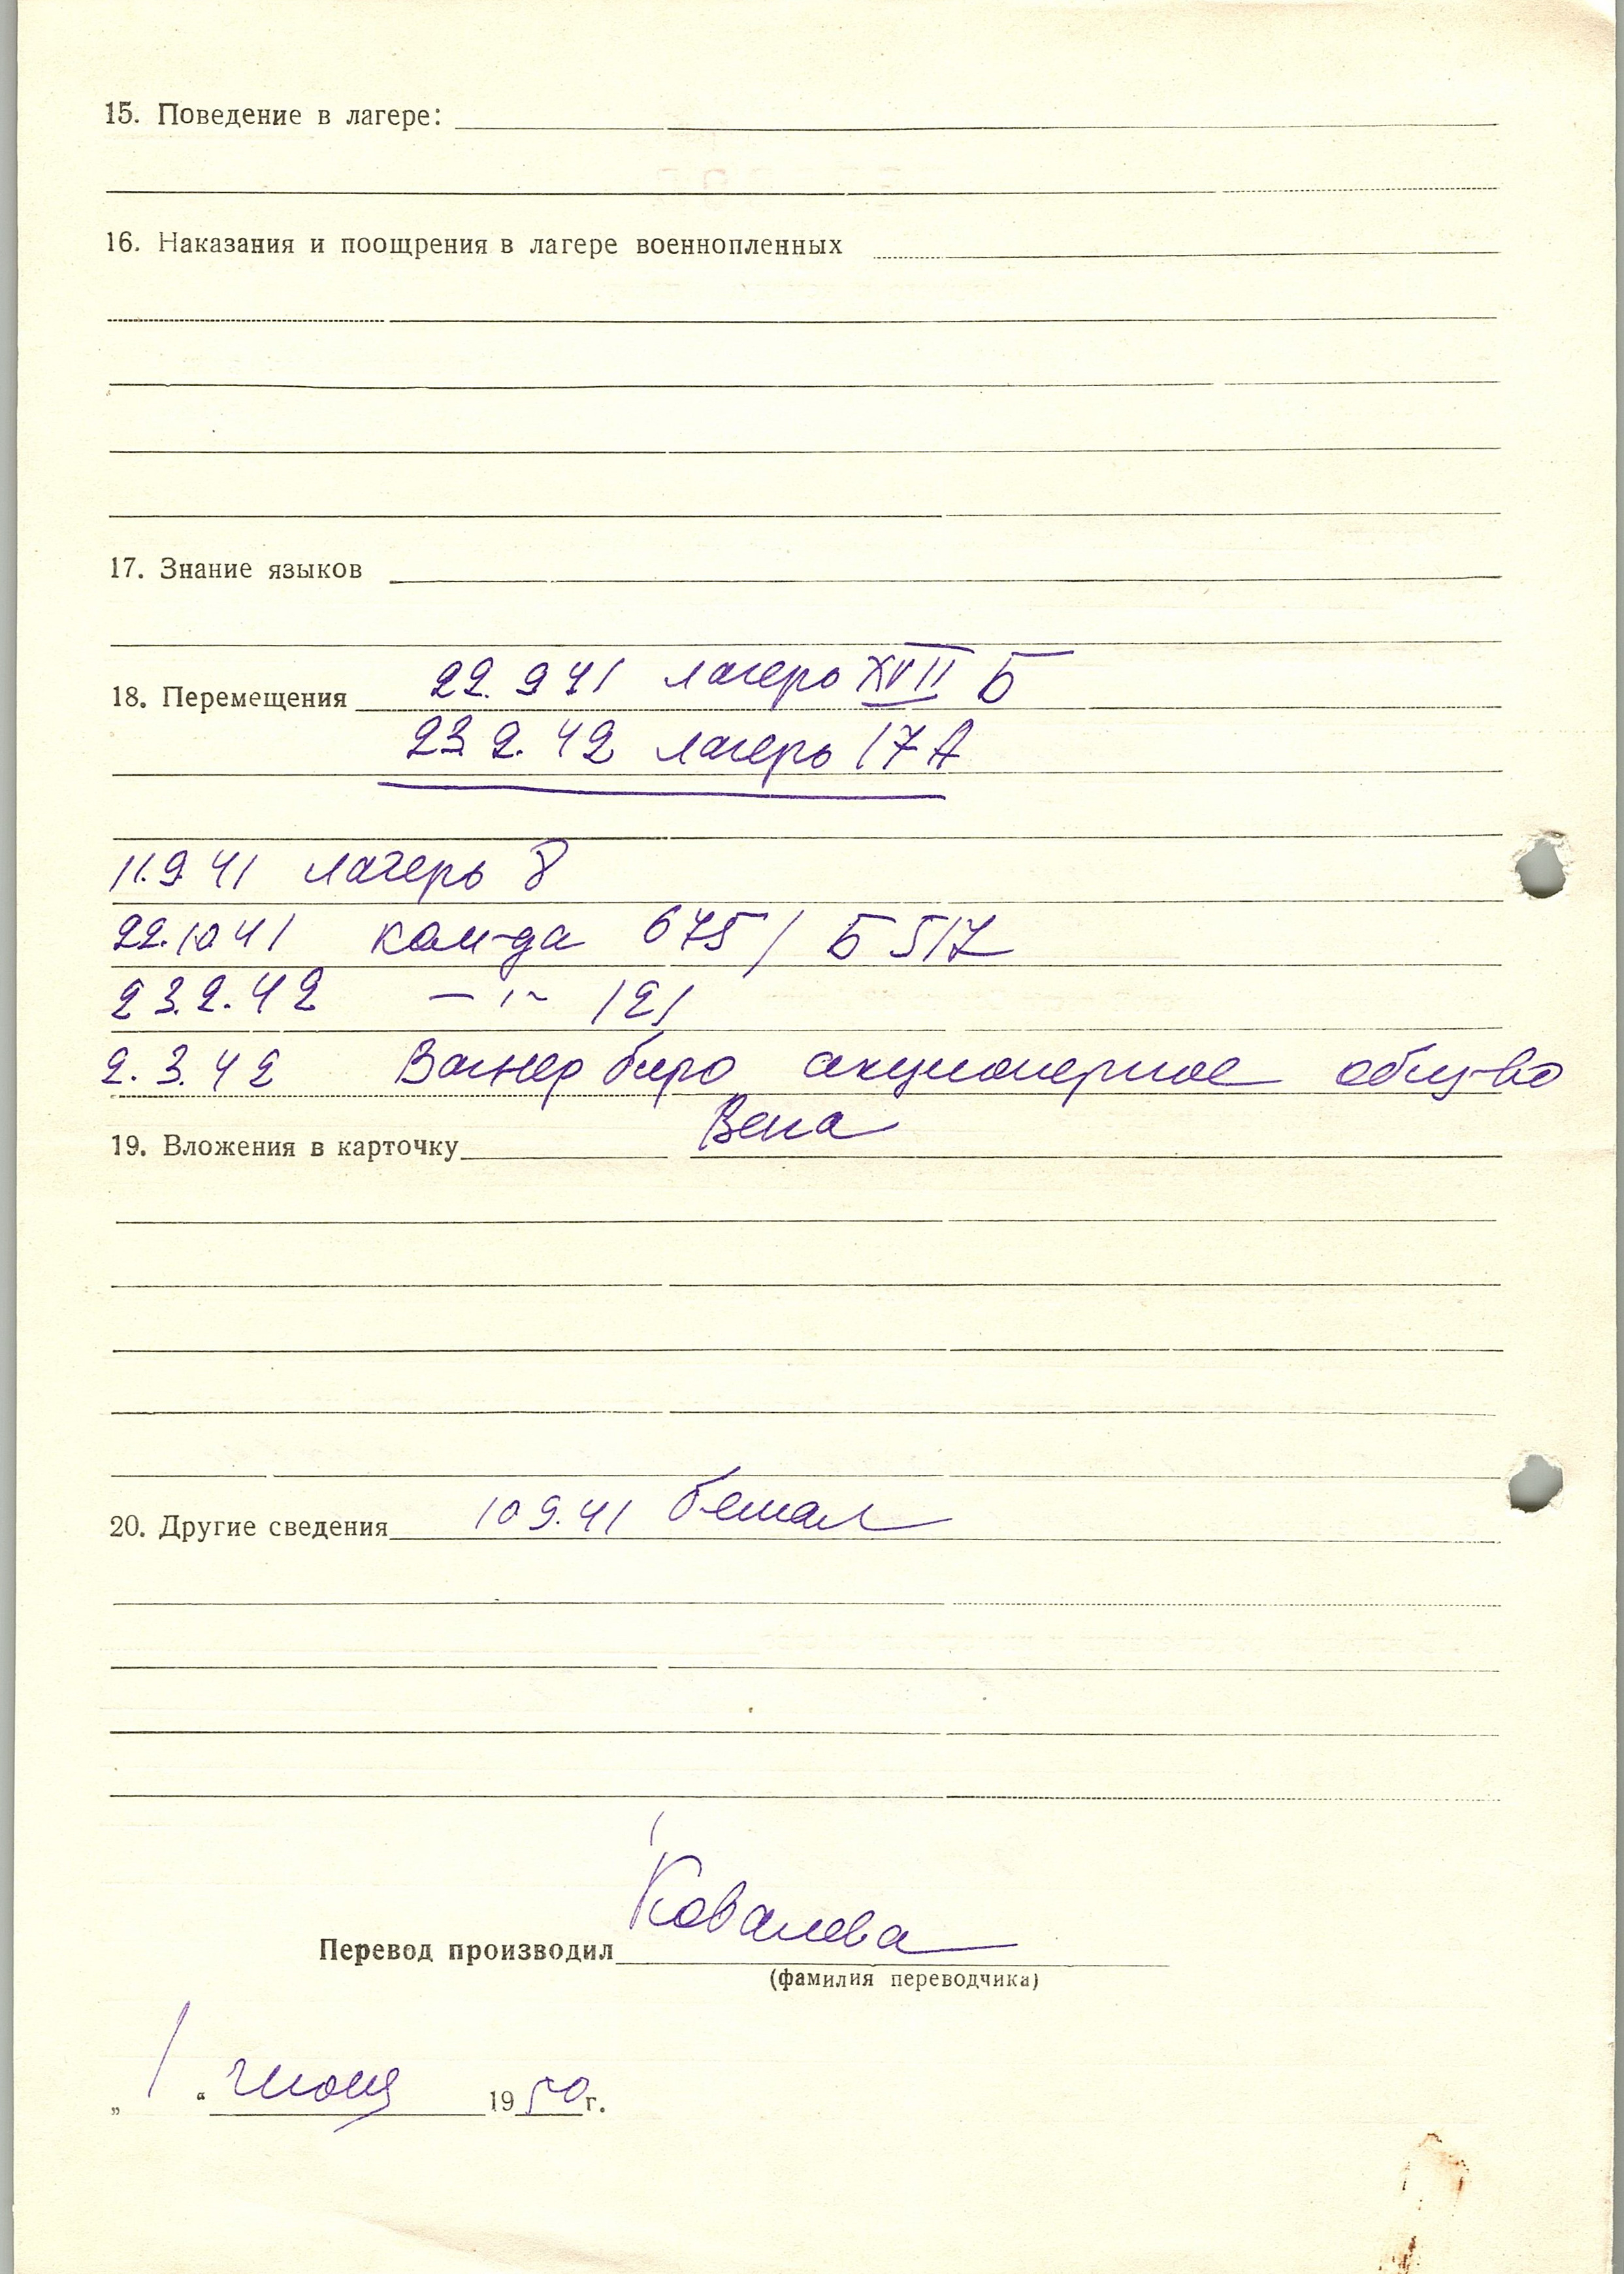 15. Поведение в лагере:
16. Наказания и поощрения в лагере военнопленных
17. Знание языков
18. Перемещения 22.9 41 лагерь XVII Б
23 2. 42 лагерь 17 А
11.9 41 лагерь 8
22.10 41 ком-да 675 / Б 517
23.2.42 — " — 121
2.3.42 Вагнер биро акционерное общ-во
Вена
19. Вложения в карточку
20. Другие сведения 10 9.41 бежал
Ковалева
Перевод производил
(фамилия переводчика)
„ 1 “ июня 1950 г.